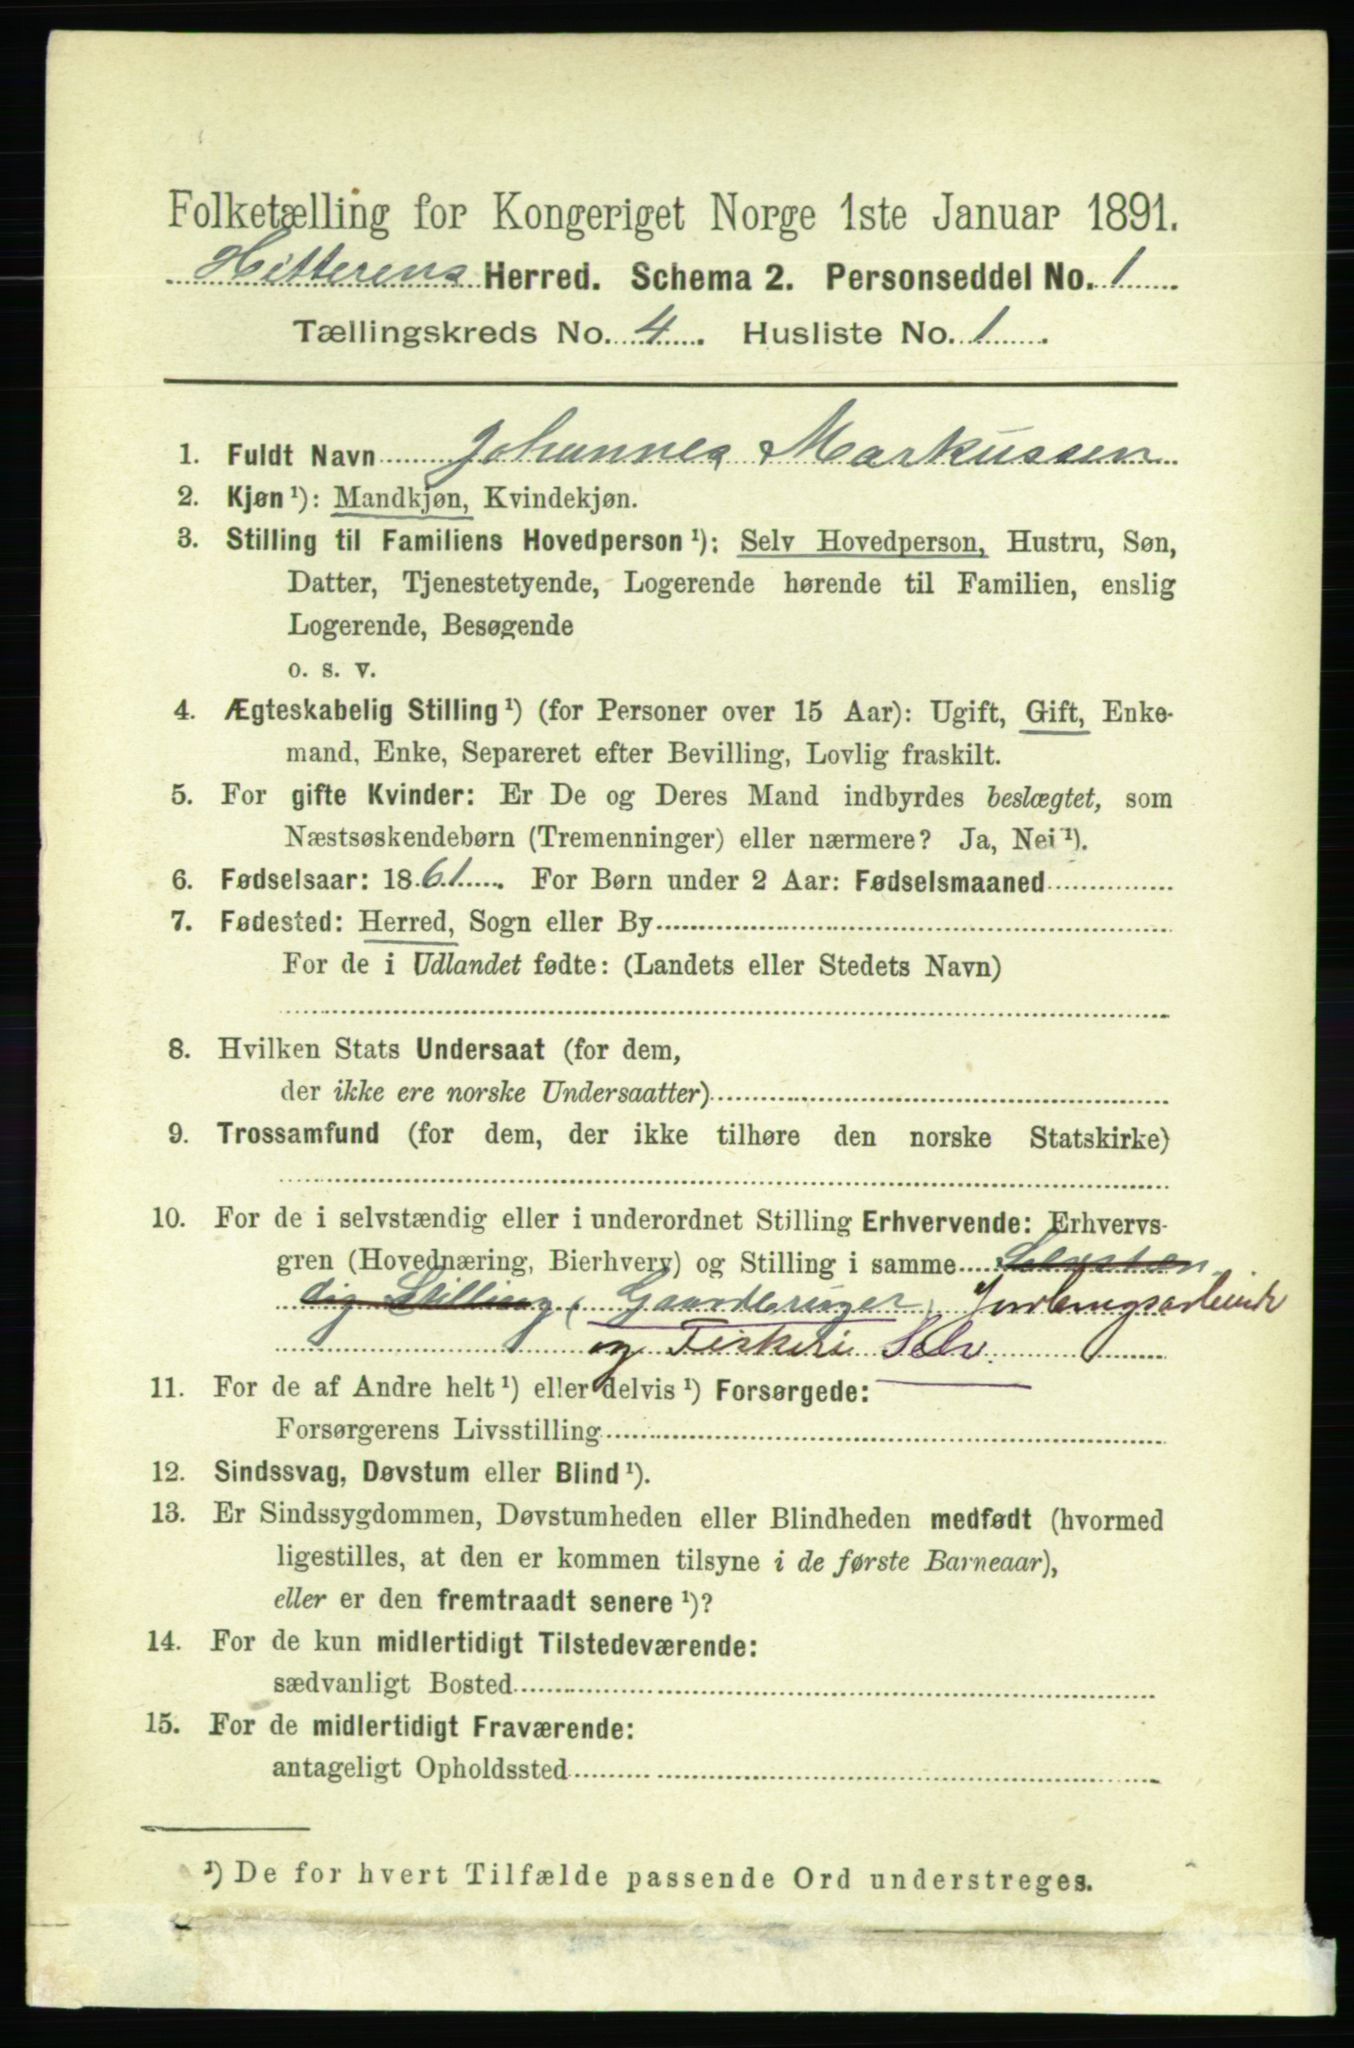 Folketælling for Kongeriget Norge 1ste Januar 1891.
Hitterens Herred. Schema 2. Personseddel No. 1
Tællingskreds No. 4. Husliste No. 1.
1. Fuldt Navn Johannes Markussen
2. Kjøn¹): Mandkjøn, Kvindekjøn.
3. Stilling til Familiens Hovedperson¹): Selv Hovedperson, Hustru, Søn,
Datter, Tjenestetyende, Logerende hørende til Familien, enslig
Logerende, Besøgende
o. s. v.
4. Ægteskabelig Stilling¹) (for Personer over 15 Aar): Ugift, Gift, Enke-
mand, Enke, Separeret efter Bevilling, Lovlig fraskilt.
5. For gifte Kvinder: Er De og Deres Mand indbyrdes beslægtet, som
Næstsøskendebørn (Tremenninger) eller nærmere? Ja, Nei¹).
6. Fødselsaar: 1861. For Børn under 2 Aar: Fødselsmaaned
7. Fødested: Herred, Sogn eller By
For de i Udlandet fødte: (Landets eller Stedets Navn)
8. Hvilken Stats Undersaat (for dem,
der ikke ere norske Undersaatter)
9. Trossamfund (for dem, der ikke tilhøre den norske Statskirke)
10. For de i selvstændig eller i underordnet Stilling Erhvervende: Erhvervs-
gren (Hovednæring, Bierhverv) og Stilling i samme Selvstæn
dig Stilling, Gaardbruger, Jordbrugsarbeide
og Fiskeri Selv.
11. For de af Andre helt¹) eller delvis¹) Forsørgede:
Forsørgerens Livsstilling
12. Sindssvag, Døvstum eller Blind¹).
13. Er Sindssygdommen, Døvstumheden eller Blindheden medfødt (hvormed
ligestilles, at den er kommen tilsyne i de første Barneaar),
eller er den fremtraadt senere¹)?
14. For de kun midlertidigt Tilstedeværende:
sædvanligt Bosted
15. For de midlertidigt Fraværende:
antageligt Opholdssted
¹) De for hvert Tilfælde passende Ord understreges.